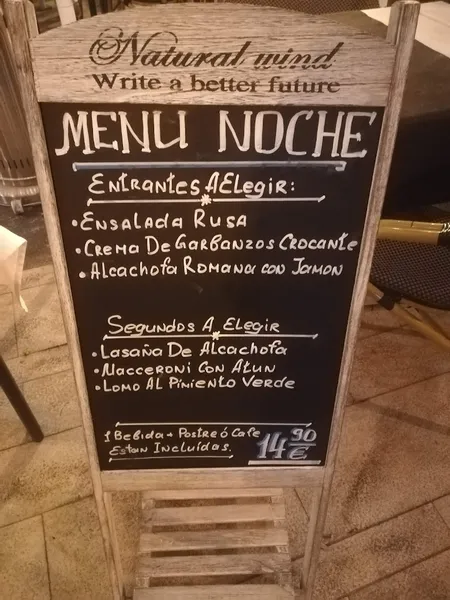 Natural wind
Write a better future
MENU NOCHE
ENTRANTES A ELEGIR:
• ENSALADA RUSA
• CREMA DE GARBANZOS CROCANTE
• ALCACHOFA ROMANA CON JAMON
SEGUNDOS A ELEGIR
• LASAÑA DE ALCACHOFA
• MACCERONI CON ATUN
• LOMO AL PIMIENTO VERDE
1 BEBIDA + POSTRE Ó CAFE
ESTAN INCLUÍDAS.
14 90 €